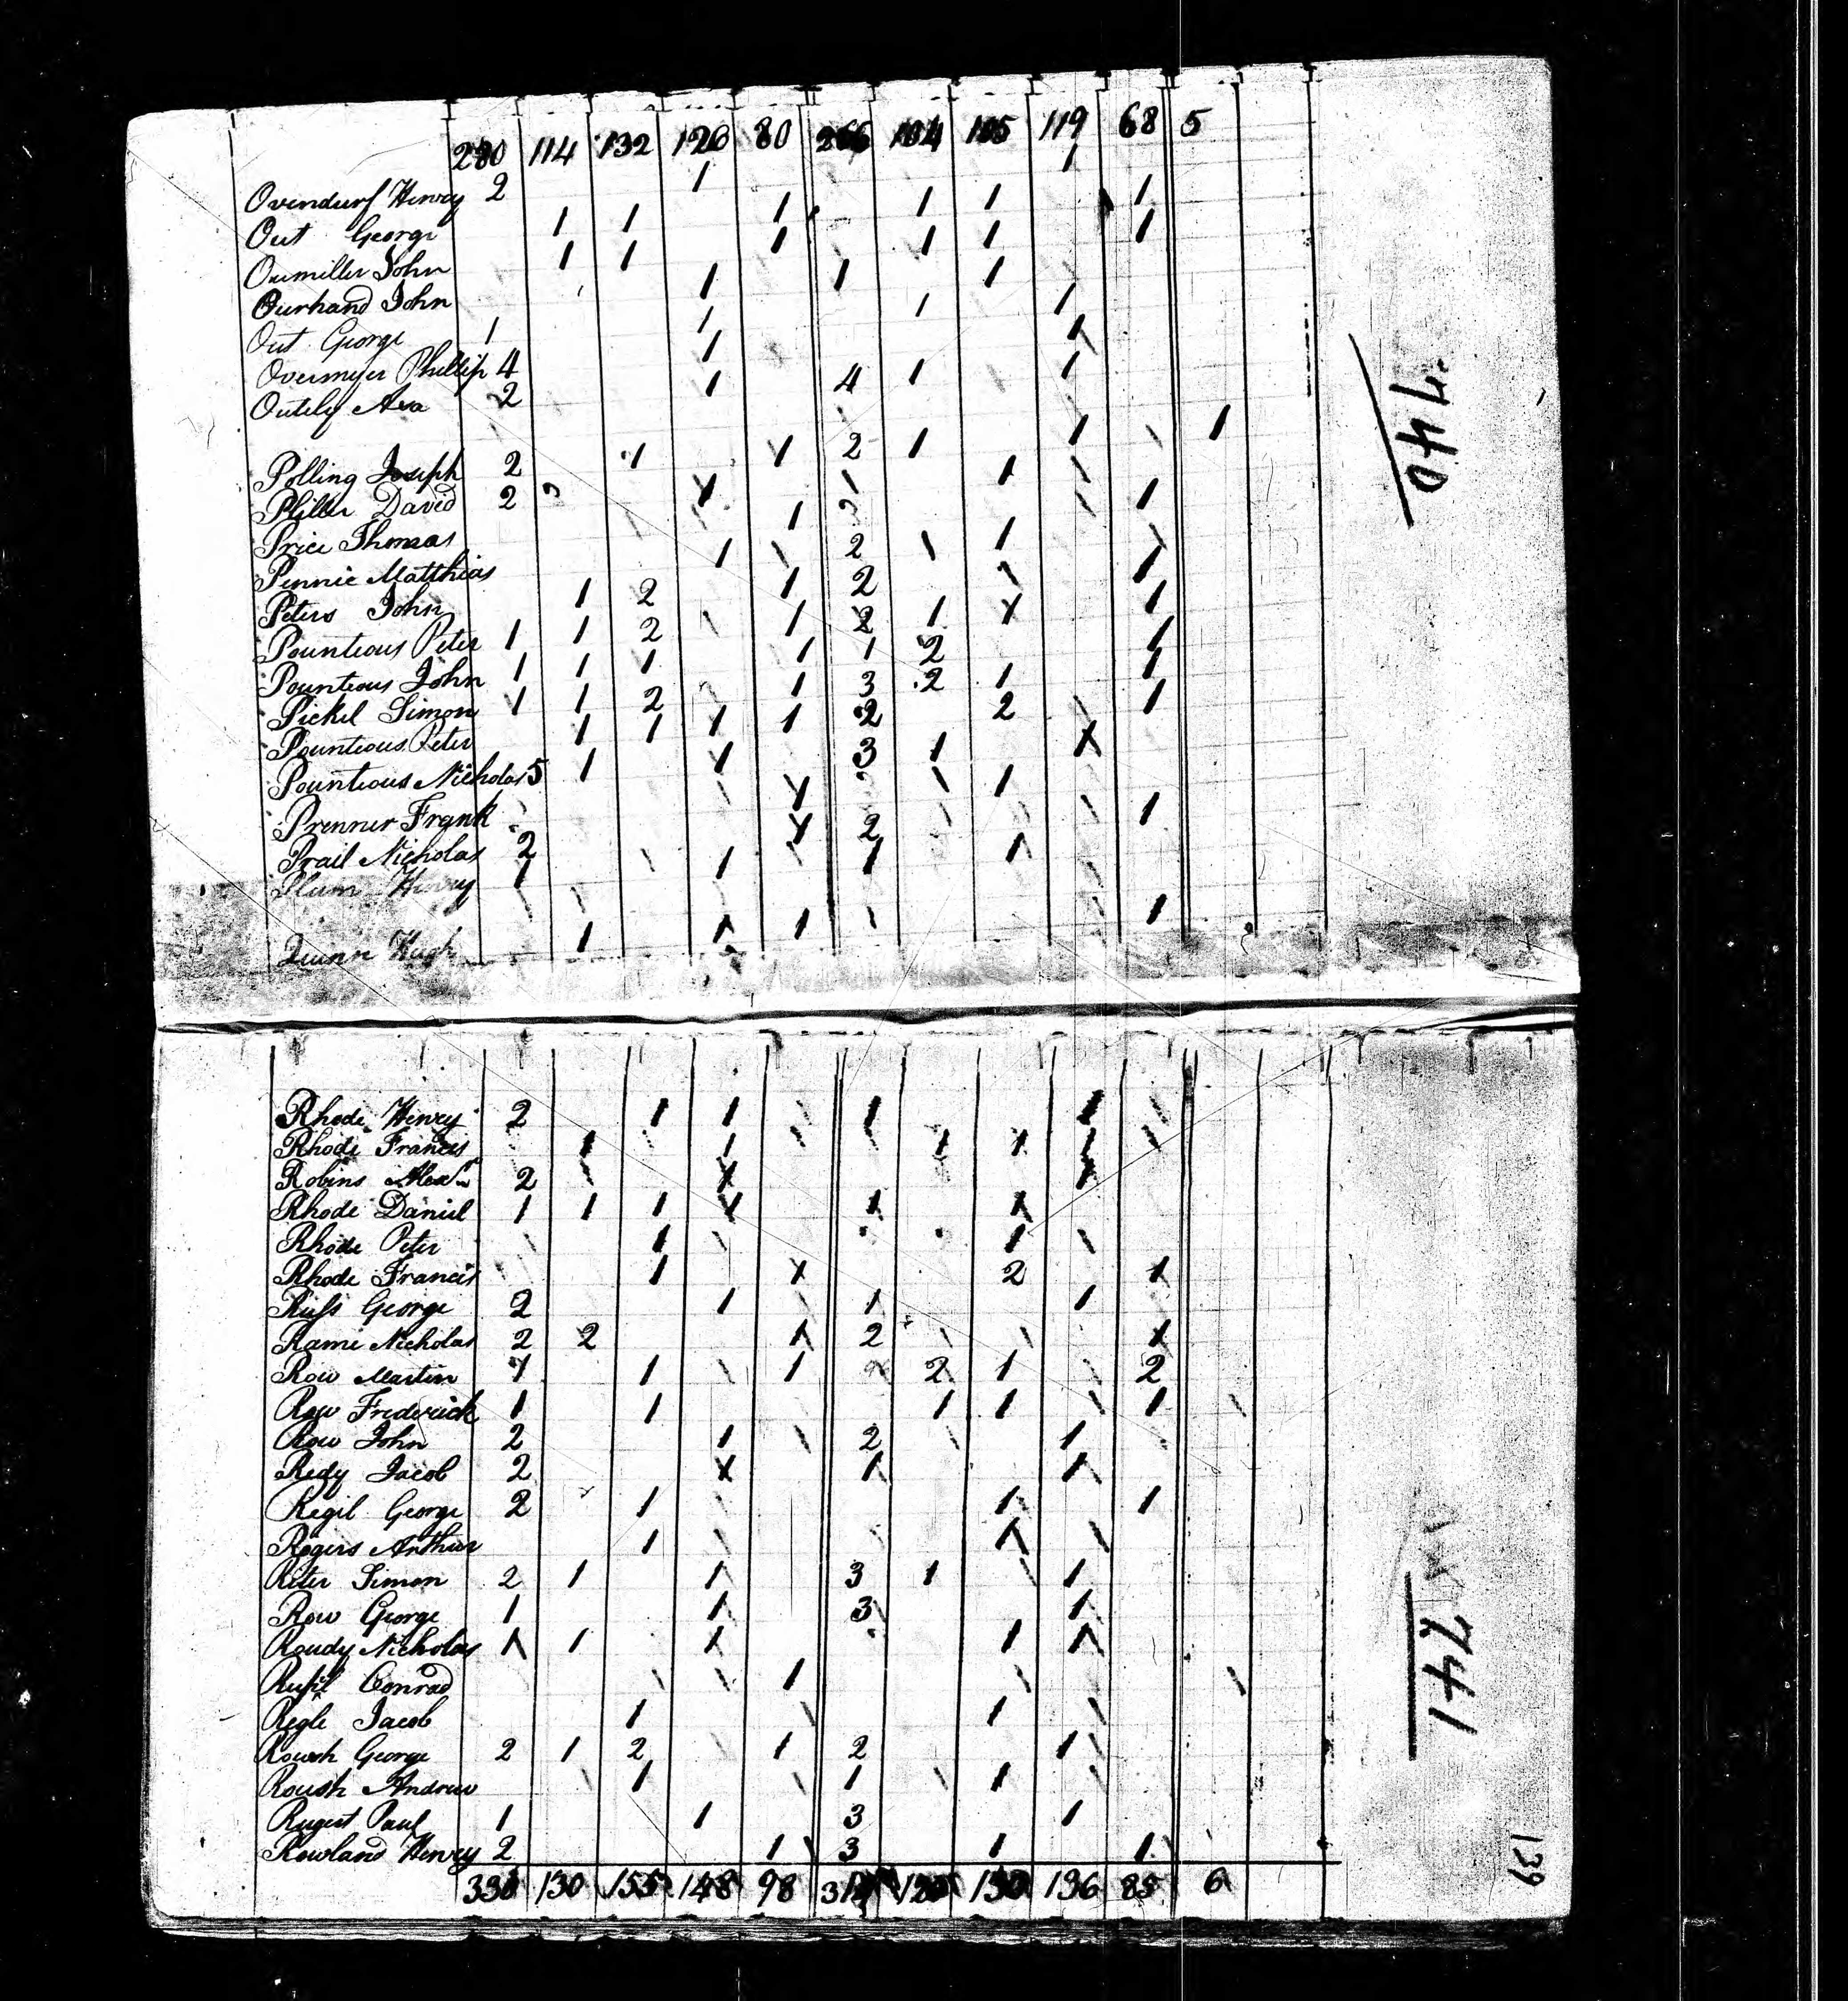 280 114 132 120 80 266 104 105 119 68 5
Ovendurf Henry 2 1 1
Out George 1 1 1 1 1 1
Oumiller John 1 1 1 1 1 1
Ourhand John 1 1 1
Out George 1 1 1 1
Overmyer Phillip 4 1 1
Outely Asa 2 1 4 1 1
Polling Joseph 2 1 1 2 1 1 1
Philler David 2 1 1
Price Thomas 1 1
Pennie Matthias 1 2 1
Peters John 1 2 1 2 1
Pounteous Peter 1 1 2 1 2 1 1 1
Pounteous John 1 1 1 1 1 2 1
Pickel Simon 1 1 2 1 3 2 1 1
Pounteous Peter 1 1 1 1 2 2 1
Pounteous Nicholas 5 1 1 3 1 1
Prenner Frank 1 1 1
Prail Nicholas 2 1 2 1
Plum Henry 1 1 1 1
Quinn Hugh 1 1 1 1
740
Rhode Henry 2 1 1 1 1
Rhode Francis 1 1 1 1
Robins Alexr 2 1 1
Rhode Daniel 1 1 1 1 1 1
Rhode Peter 1 1
Rhode Francis 1 1 2 1
Rufs George 2 1 1 1
Rame Nicholas 2 2 1 2 1
Row Martin 1 1 1 2 1 2
Row Frederick 1 1 1 1 1
Row John 2 1 2 1
Redy Jacob 2 1 1 1
Regil George 2 1 1 1
Rogers Arthur 1 1
Riter Simon 2 1 1 3 1 1
Row George 1 1 3 1
Roudy Nicholas 1 1 1 1 1
Conrad 1
Regle Jacob 1 1
Roush George 2 1 2 1 2 1
Roush Andrew 1 1 1
Rugert Paul 1 1 3 1
Rowland Henry 2 1 3 1 1
330 130 155 148 98 136 85 6
741
139